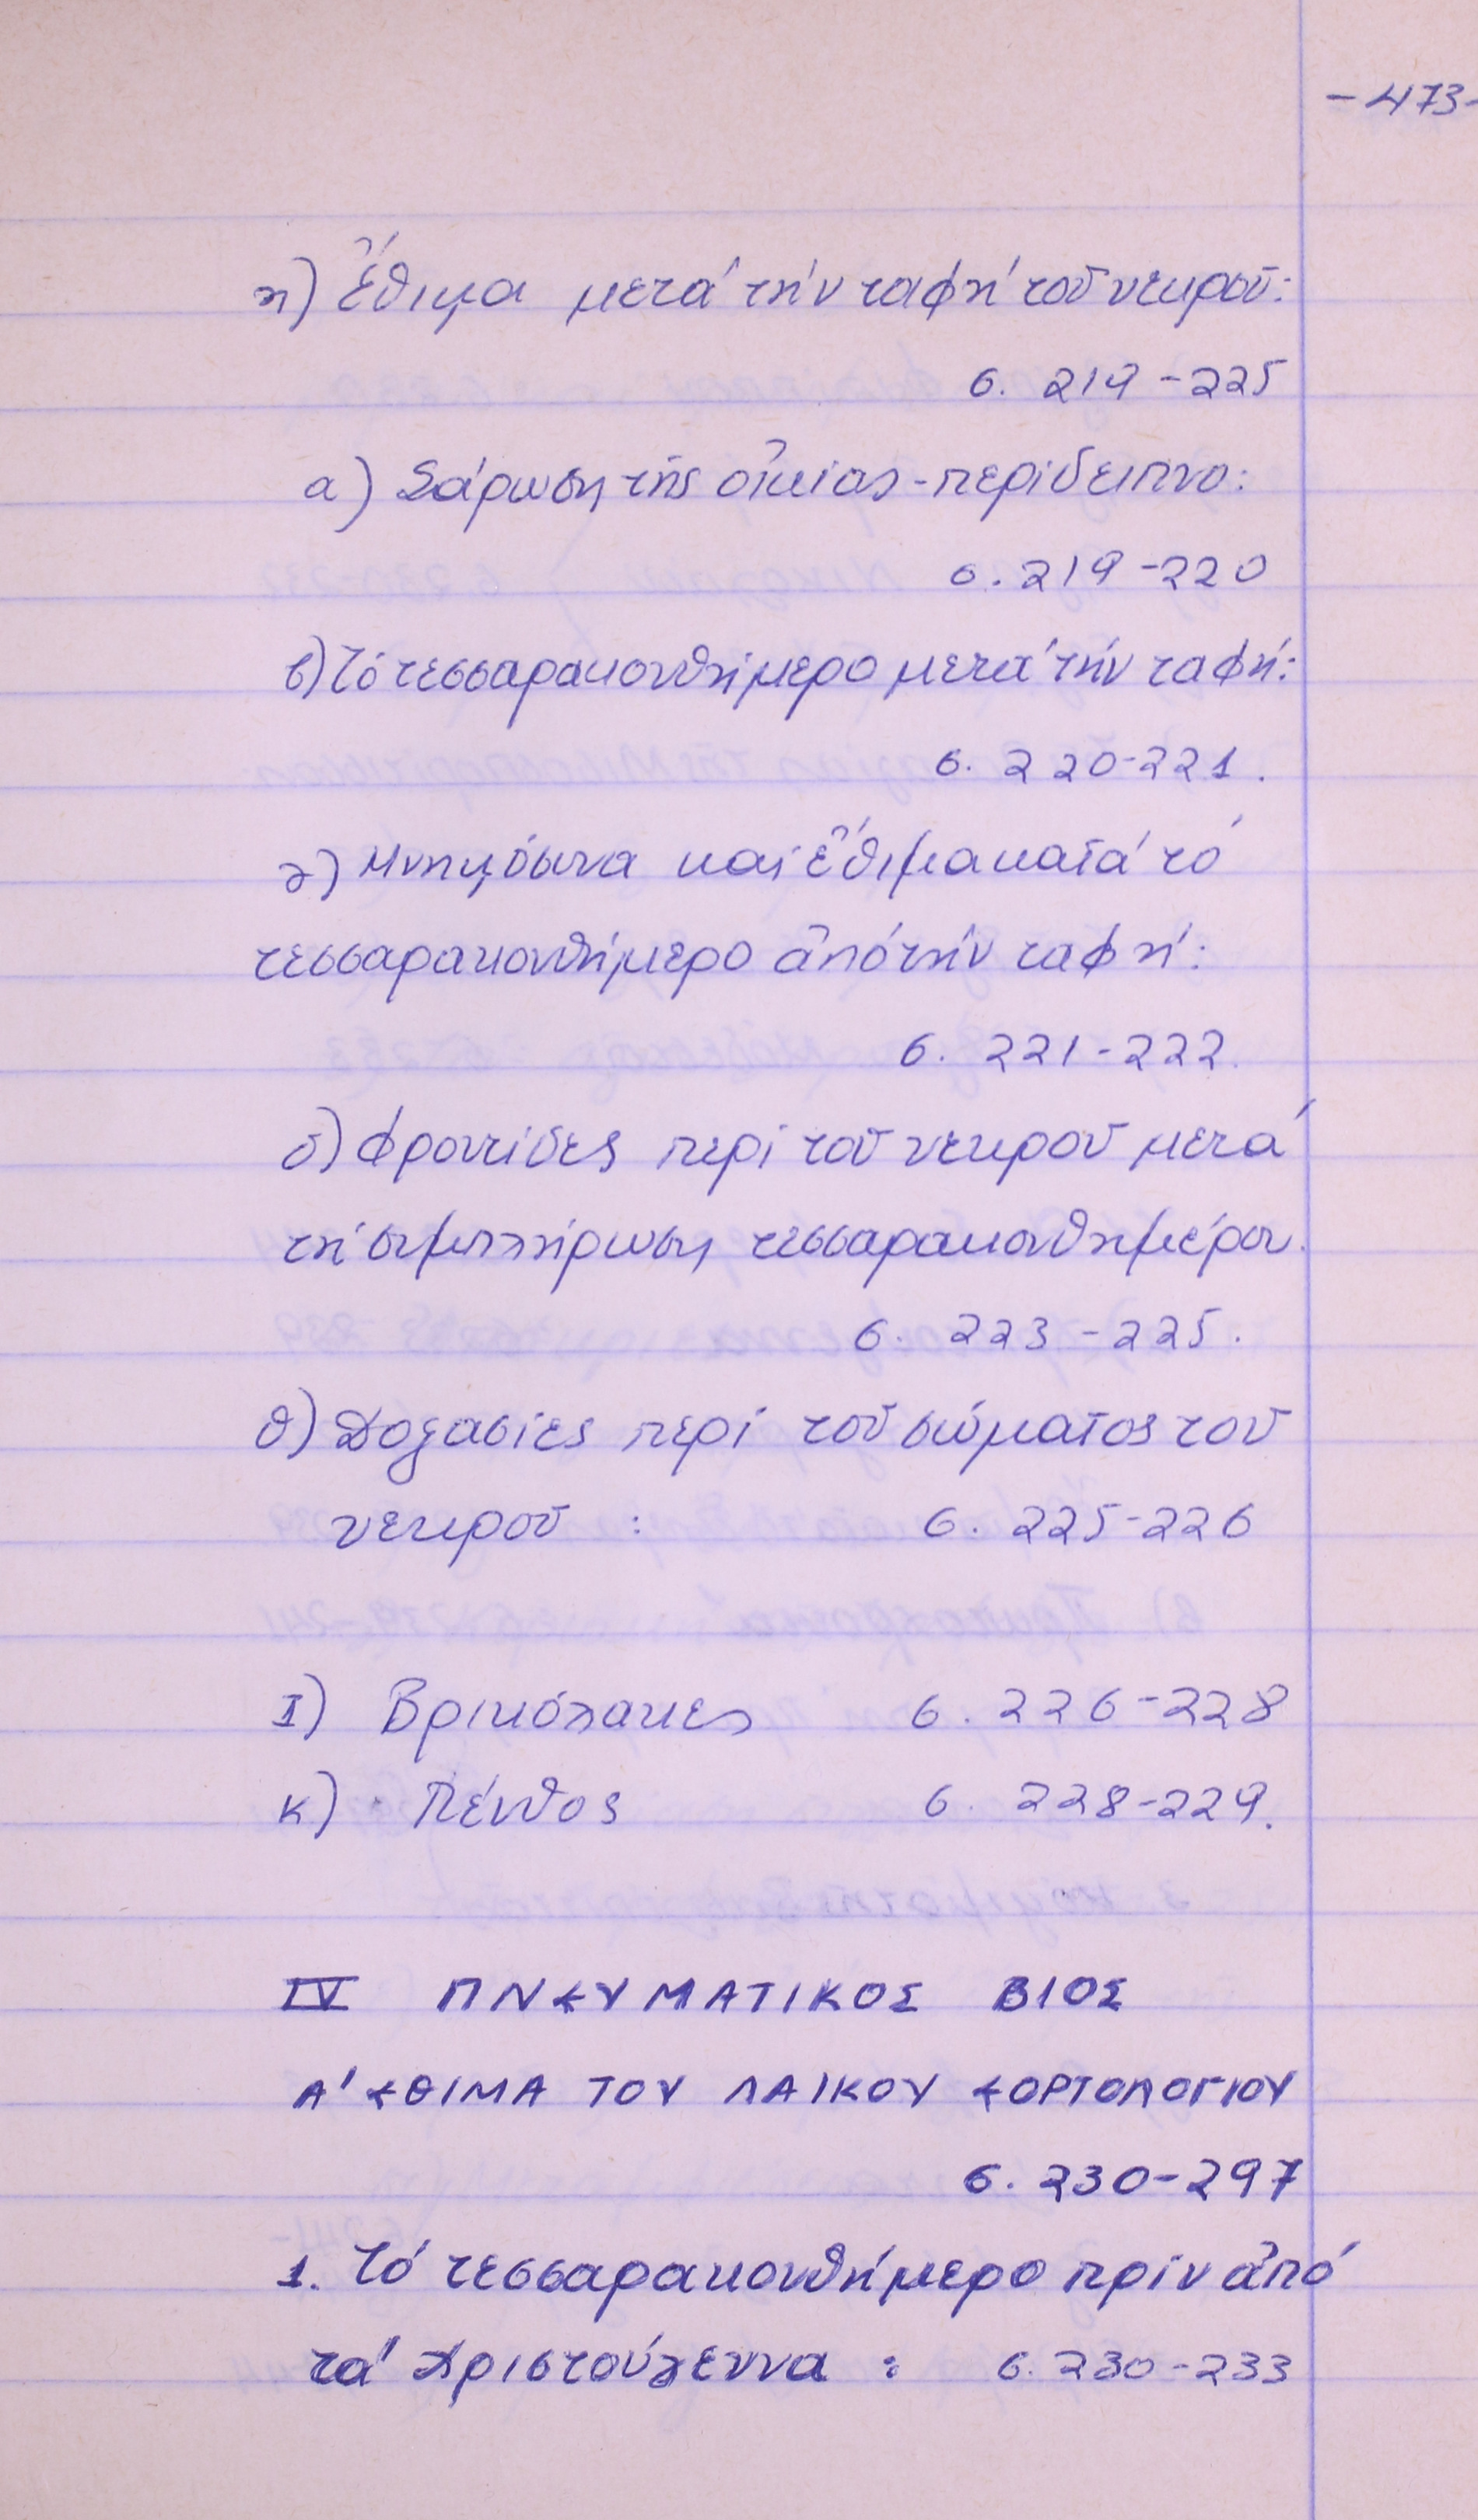 -473-
η) Ἔθιμα μετά τήν ταφή τοῦ νεκροῦ:
σ. 219-225
α) Σάρωση τῆς οἰκίας-περίδειπνο:
σ. 219-220
β) Τό τεσσαρακονθήμερο μετά τήν ταφή:
σ. 220-221.
γ) Μνημόσυνα καί ἔθιμα κατά τό
τεσσαρακονθήμερο ἀπό τήν ταφή:
σ. 221-222.
δ) Φροντίδες περί τοῦ νεκροῦ μετά
τή συμπλήρωση τεσσαρακονθημέρου.
σ. 223-225.
θ) Δοξασίες περί τοῦ σώματος τοῦ
νεκροῦ : σ. 225-226
Ι) Βρικόλακες σ. 226-228
κ) Πένθος σ. 228-229.
IV ΠΝΕΥΜΑΤΙΚΟΣ ΒΙΟΣ
Α' ΕΘΙΜΑ ΤΟΥ ΛΑΙΚΟΥ ΕΟΡΤΟΛΟΓΙΟΥ
σ. 230-297
1. Τό τεσσαρακονθήμερο πρίν ἀπό
τά Χριστούγεννα : σ. 230-233